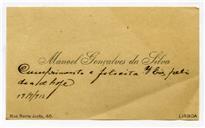 Manoel Gonçalves da Silva
Cumprimenta e felicita V. Exª pelo
dia d'hoje
Rua Bento
LISBOA